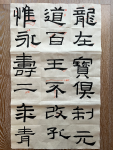 龍在寶俱制元
道百王不改孔
惟永壽二年青